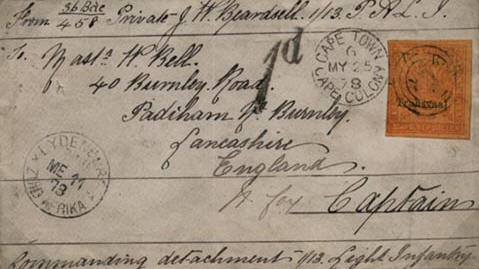 From 36 Bde
458 Private J W Beardsell 1/13 P.A.L.I.
To Mastr W. Bell.
40 Burnley Road.
Padiham Nr Burnley.
Lancashire
England
1d
CAPE TOWN
MY 25
78
CAPE COLONY
Transvaal
LYDENBURG
ME 11
78
ZUID AFRIKA
Captain
Commanding detachment 1/13 Light Infantry